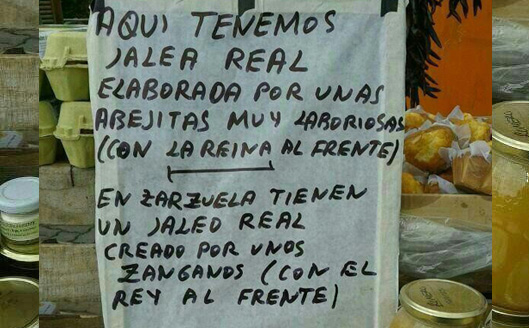 AQUI TENEMOS
JALEA REAL
ELABORADA POR UNAS
ABEJITAS MUY LABORIOSAS
(CON LA REINA AL FRENTE)
EN ZARZUELA TIENEN
UN JALEO REAL
CREADO POR UNOS
ZANGANOS (CON EL
REY AL FRENTE)